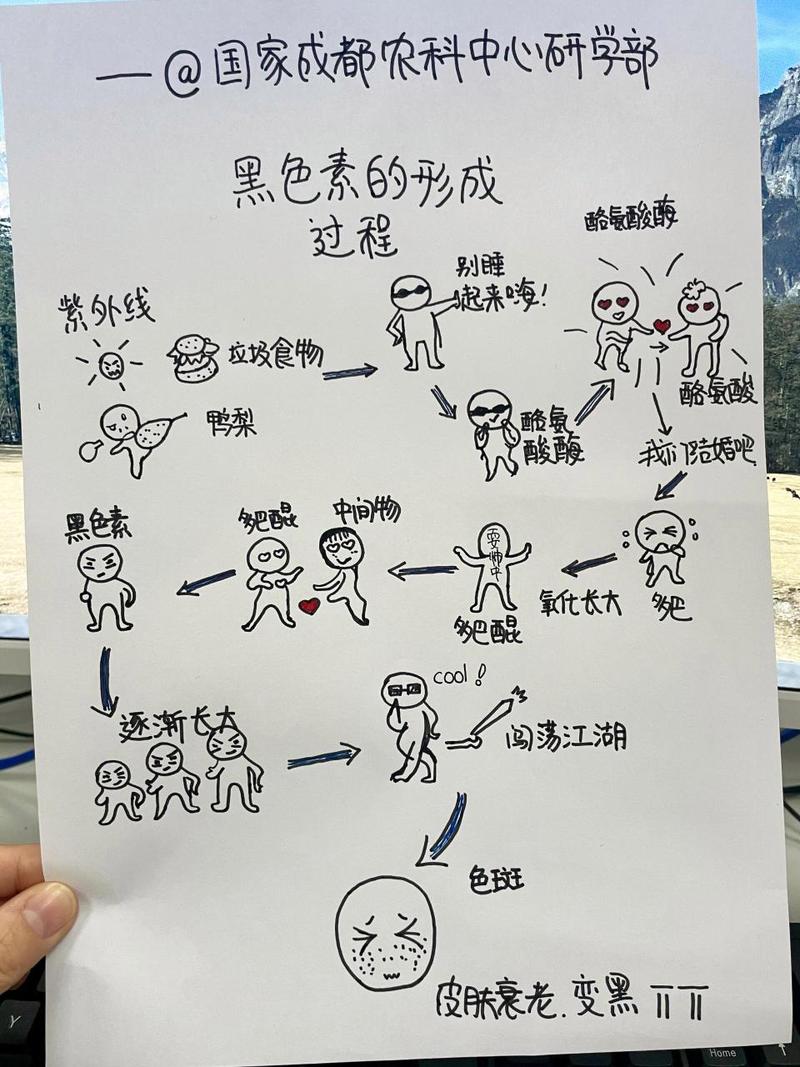 —@国家成都农科中心研学部
黑色素的形成
过程
紫外线
垃圾食物
鸭梨
别睡
起来嗨!
酪氨
酸酶
酪氨酸酶
酪氨酸
我们结婚吧
多巴
氧化长大
耍帅中
多巴醌
中间物
多巴醌
黑色素
逐渐长大
cool!
闯荡江湖
色斑
皮肤衰老.变黑 TT
Y
Home